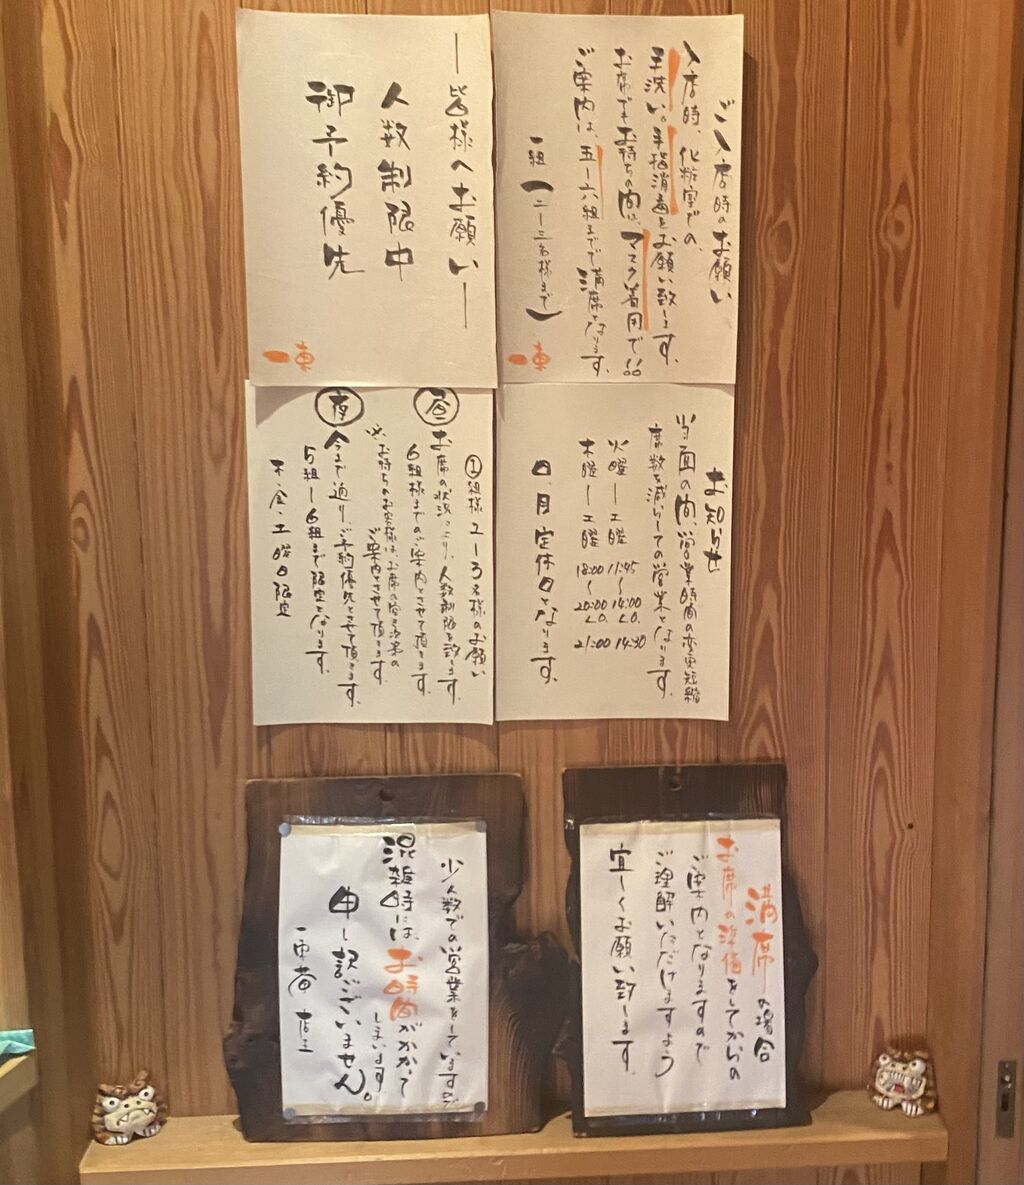 ご入店時のお願い
入店時、化粧室での、
手洗い。手指消毒をお願い致します。
お席でもお待ちの間は、マスク着用で
ご案内は、五ー六組までで満席となります。
一組(二ー三名様まで)
一東
ー皆様へお願いー
人数制限中
御予約優先
一東
お知らせ
当面の間、営業時間の変更短縮
席数を減らしての営業となります。
火曜ー土曜 11:45〜14:00 L.O. 14:30
木曜ー土曜 18:00〜20:00 L.O. 21:00
日、月 定休日となります。
①組様2ー3名様のお願い
昼 お席の状況により、人数制限を致します。
6組様までのご案内とさせて頂きます。
※お待ちのお客様は、お席の空き次第の
ご案内とさせて頂きます。
夜 今まで通り、ご予約優先とさせて頂きます。
5組ー6組まで限定となります。
木・金・土曜日限定
満席の場合
お席の準備をしてからの
ご案内となりますので
ご理解いただけますよう
宜しくお願い致します
少人数での営業をしていますが
混雑時には、お時間がかかって
しまいます
申し訳ございません。
一東菴 店主